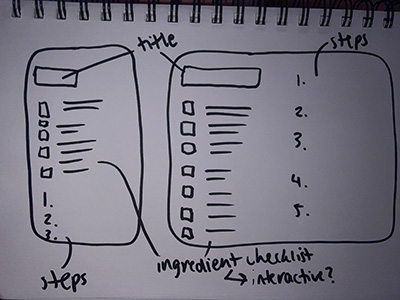 title
steps
1.
2.
3.
4.
5.
1.
2.
3.
steps
ingredient checklist
↳ interactive?